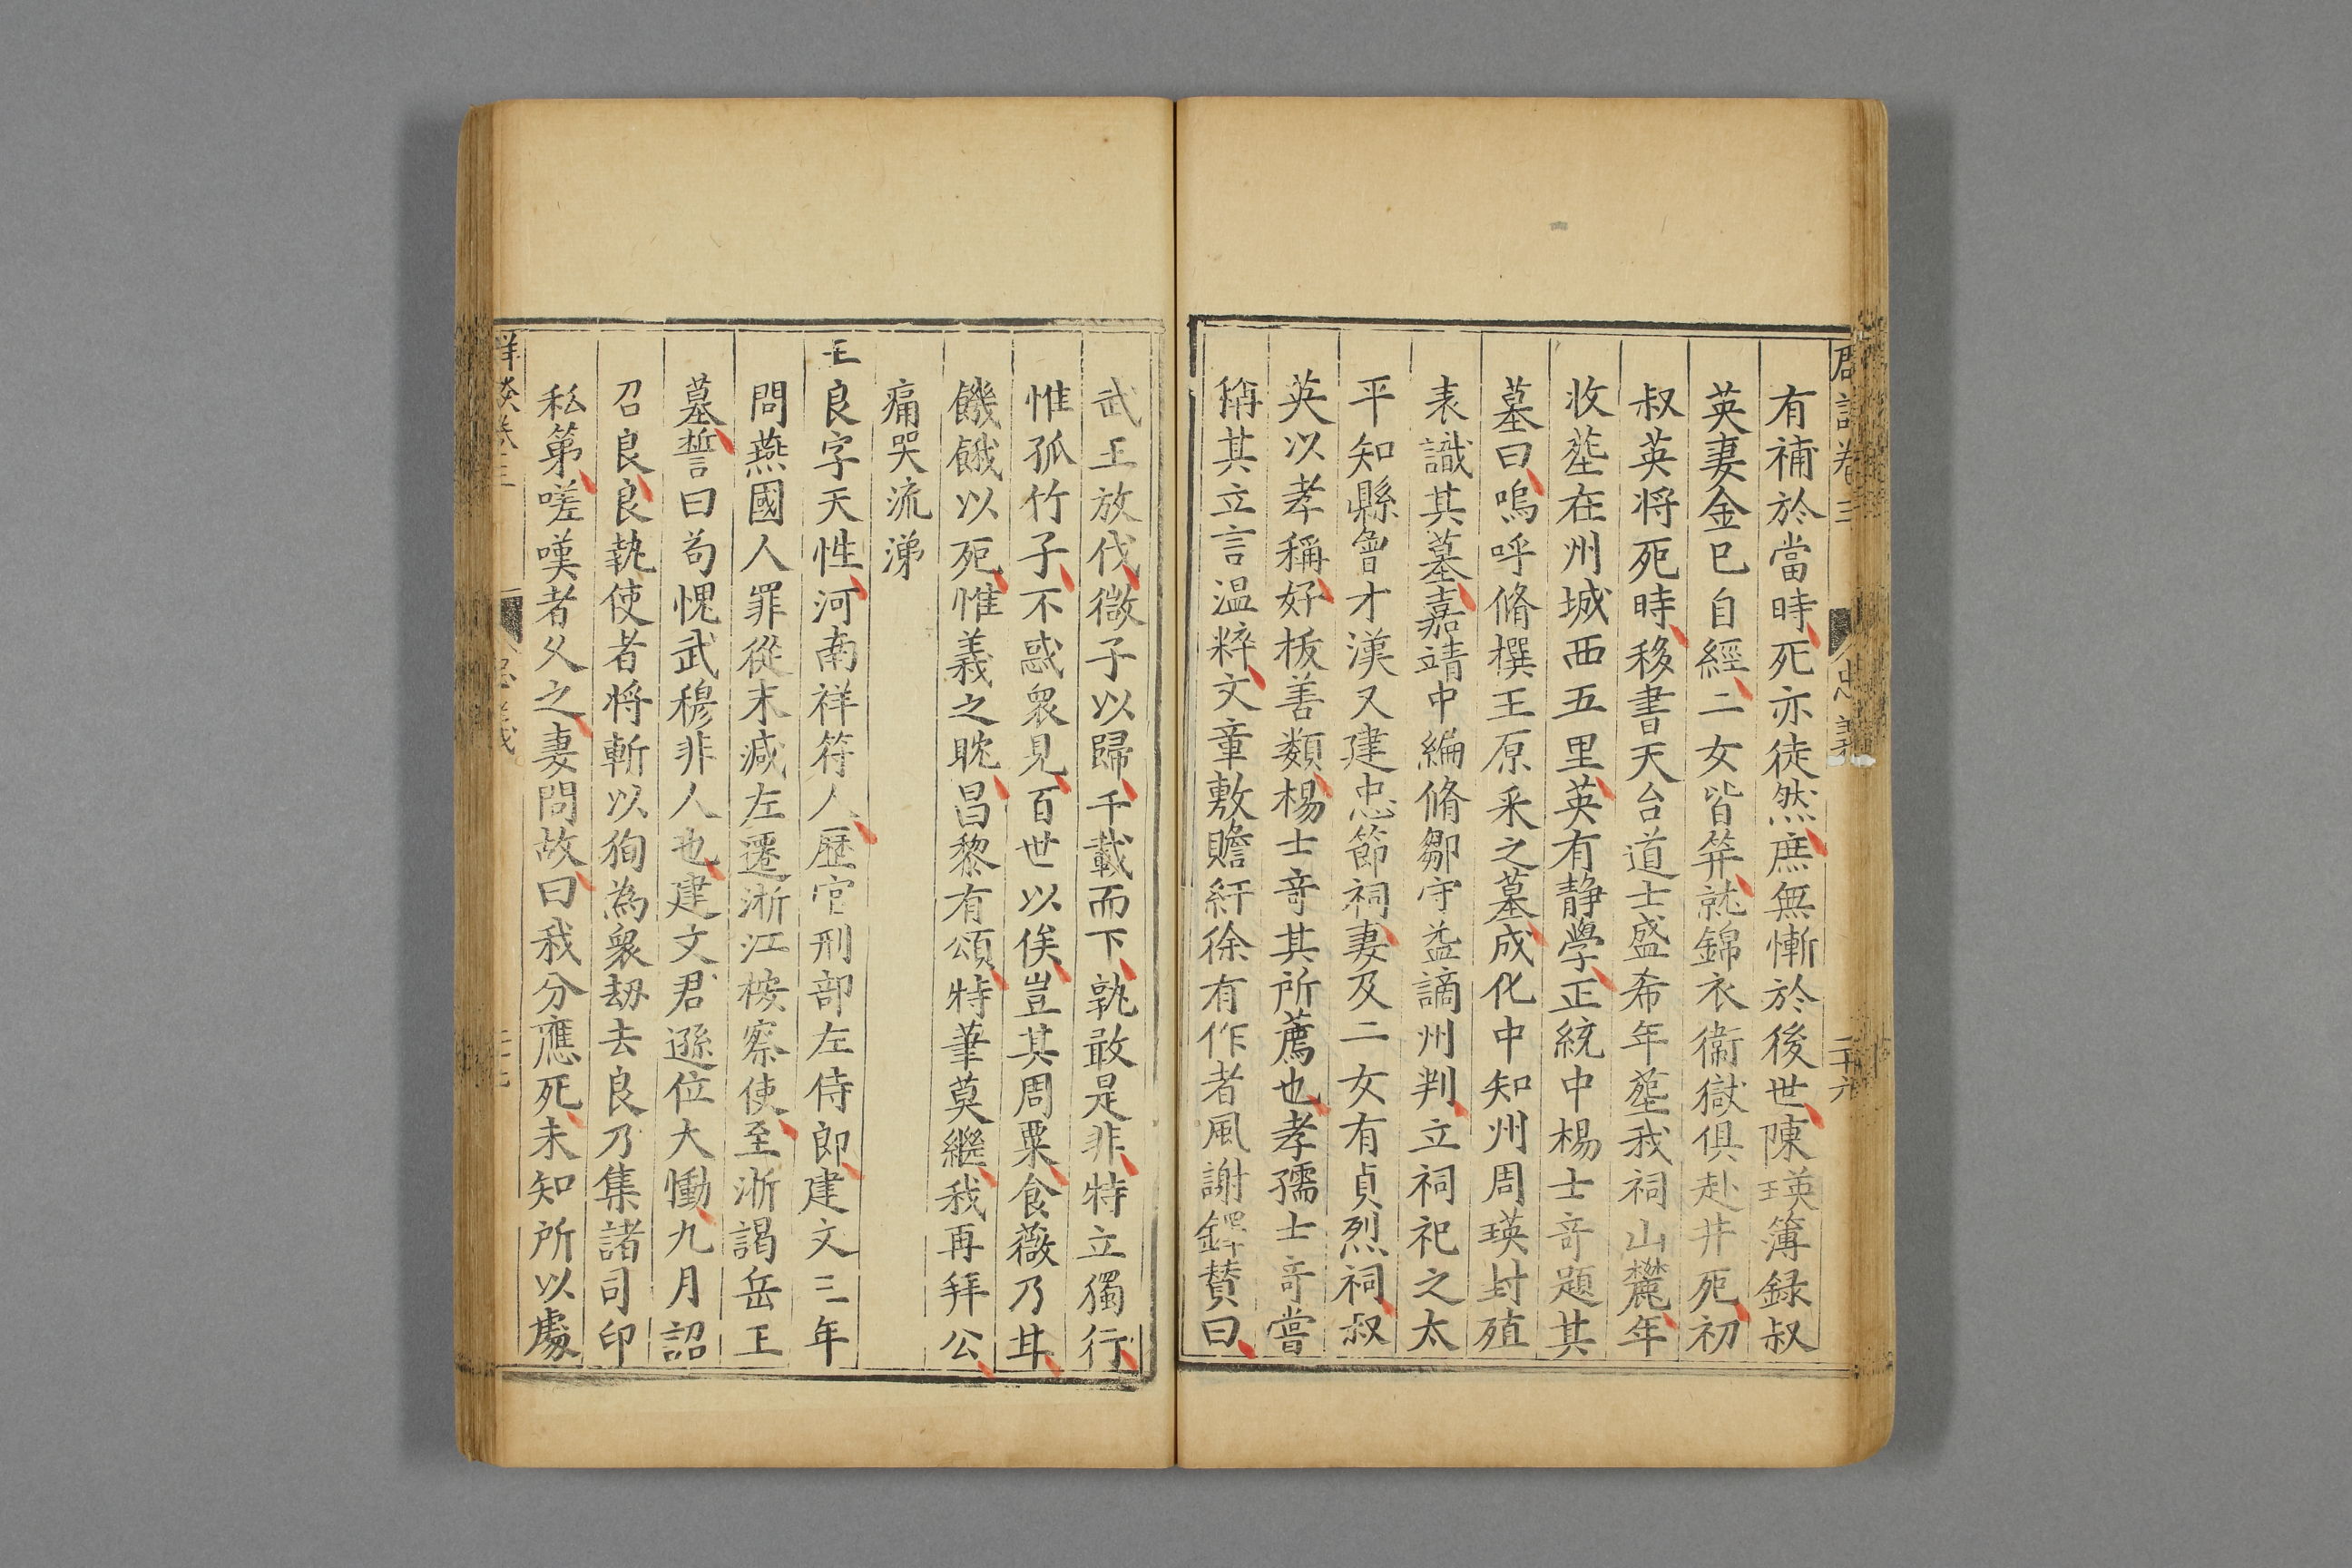 有補於當時死亦徒然庶無慚於後世陳瑛簿録叔
英妻金已自經二女皆笄就錦衣衞獄俱赴井死初
叔英将死時移書天台道士盛希年塟我祠山麓年
收塟在州城西五里英有静學正統中楊士竒題其
墓曰嗚呼脩撰王原采之墓成化中知州周瑛封殖
表識其墓嘉靖中編脩鄒守益謫州判立祠祀之太
平知縣魯才漢又建忠節祠妻及二女有貞烈祠叔
英以孝稱好拔善類楊士竒其所薦也孝孺士竒嘗
稱其立言温粹文章敷贍紆徐有作者風謝鐸賛曰
武王放伐微子以歸千載而下孰敢是非特立獨行
惟孤竹子不惑衆見百世以俟豈其周粟食薇乃甘
饑餓以死惟義之耽昌黎有頌特筆莫繼我再拜公
痛哭流涕
王良字天性河南祥符人歷官刑部左侍郎建文三年
問燕國人罪從末減左遷淅江按察使至淅謁岳王
墓誓曰苟愧武穆非人也建文君遜位大慟九月詔
召良良執使者将斬以狥為衆刼去良乃集諸司印
私第嗟嘆者久之妻問故曰我分應死未知所以處